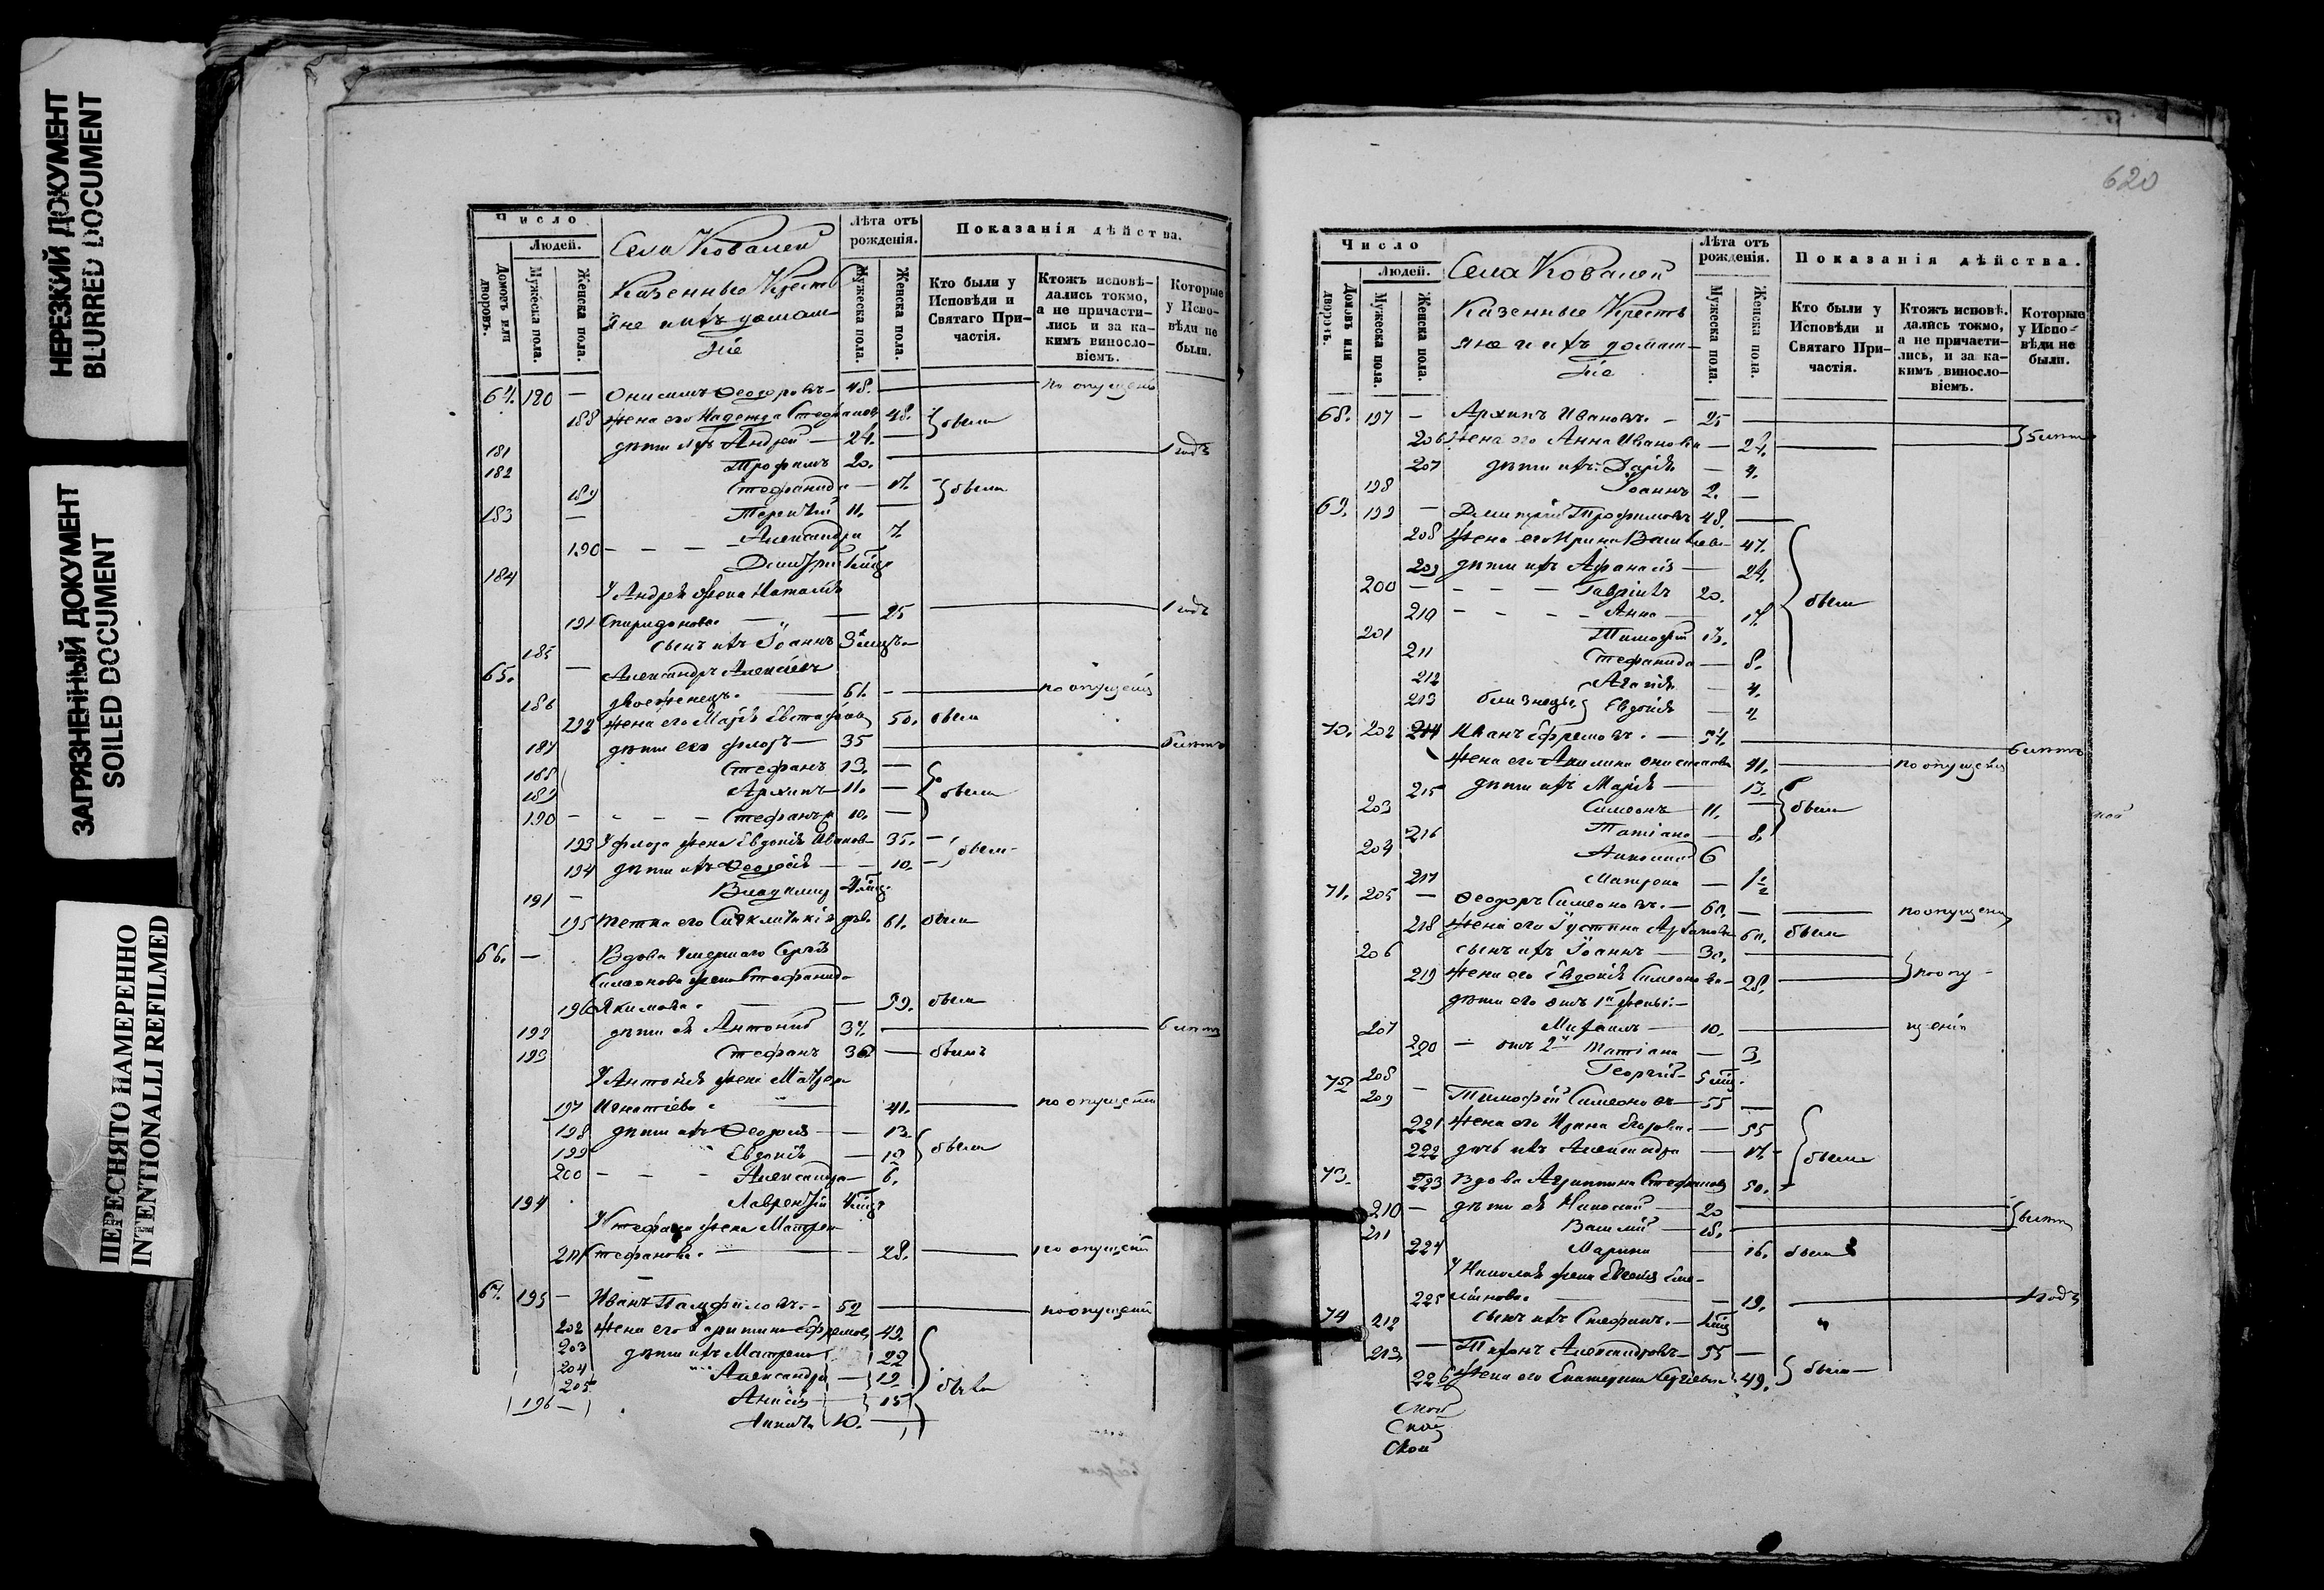 НЕРЕЗКИЙ ДОКУМЕНТ
BLURRED DOCUMENT
ЗАГРЯЗНЕННЫЙ ДОКУМЕНТ
SOILED DOCUMENT
ПЕРЕСНЯТО НАМЕРЕННО
INTENTIONALLI REFILMED
Число
Людей.
Домовъ или дворовъ.
Мужеска пола.
Женска пола.
Села Ковалей
Казенные Кресть
яне ихъ домаш-
ніе
Лѣта отъ рожденія.
Мужеска пола.
Женска пола.
Показанія дѣйства.
Кто были у Исповѣди и Святаго При-частія.
Ктожъ исповѣ-дались токмо, а не причасти-лись и за ка-кимъ винословіемъ.
Которые у Испо-вѣди не были.
64. 180 — Онисимъ Ѳеодоровъ — 48. по опущенію
188 жена его Надежда Стефанов 48. были
181 дѣти ихъ Андрей — 24. —
182 Трофимъ 20. 1 годъ
189 Стефанида — 17. были
183 — Терентій 11. —
190 — — — Александра 7.
184 Димитрій
У Андрея жена Наталія
191 Спиридонова — 25 1 годъ
185 сынъ ихъ Іоаннъ
65. — Александръ Алексѣевъ
186 двоеженецъ. — 61. — по опущенію
192 жена его Марія Евстафіев 50. были
187 дѣти его Флоръ — 35
188 Стефанъ 13. —
189 Архипъ — 11. — были
190 — — — Стефанъ 10. —
193 У Флора жена Евдокія Иванов 35. — были
194 дѣти ихъ Ѳеодосія — 10. —
191 — Владимир
195 тетка его дѣв. 61. были
66. — Вдова умершаго Сергія
Симеонова жена Стефанида
196 Якимова. — 59. были
192 дѣти ея Антоній 37.
193 Стефанъ 36 — былъ
У Антонія жена Матрон
197 Игнатіева. — 41. по опущенію
198 дѣти ихъ Ѳеодосія — 13.
199 Евдокія — 12 были
200 — — Александра — 6.
194 Лаврентій
У Стефана жена Матрон
201 Стефанова. — 28. по опущенію
67. 195 — Иванъ Памфиловъ. — 52 по опущенію
202 жена его Харитина Ефремов. 49.
203 дѣти ихъ Матрена 22
204 Александра — 19 были
205 Анисія — 15
196 — 10. —
620
Число
Людей.
Домовъ или дворовъ.
Мужеска пола.
Женска пола.
Села Ковалей
Казенные Кресть
яне и ихъ домаш-
ніе
Лѣта отъ рожденія.
Мужеска пола.
Женска пола.
Показанія дѣйства.
Кто были у Исповѣди и Святаго При-частія.
Ктожъ исповѣ-дались токмо, а не причасти-лись, и за ка-кимъ винословіемъ.
Которые у Испо-вѣди не были.
68. 197 — Архипъ Ивановъ. — 25
206 Жена его Анна Иванова — 24.
207 дѣти ихъ: Дарія — 4.
198 Іоаннъ 2. —
69. 199 — Димитрій Трофимовъ 48. —
208 Жена его Ирина Василіева — 47.
209 дѣти ихъ Афанасія — 24.
200 — — — Гавріилъ 20. были
210 — — — Анна — 17.
201 Тимофей 13.
211 Стефанида — 8.
212 Агафія — 4.
213 близнецы Евдокія — 4
70. 202 214 Иванъ Ефремовъ. — 54.
Жена его Акилина Онисимова 41. по опущенію
215 дѣти ихъ Марія — 13.
203 Симеонъ — 11. — были
216 Татіана — 8.
204 Николай 6
217 Матрона — 1½
71. 205 — Ѳеодоръ Симеоновъ. — 60. — по опущенію
218 Жена его Іустина 60. были
206 сынъ ихъ Іоаннъ — 30.
219 Жена его Евдокія Симеонова — 28. по опу-
дѣти его отъ 1й жены:
207 Михаилъ — 10. щенію
220 — отъ 2й Татіана — 3.
208 Георгій
72 209 — Тимофей Симеоновъ — 55 —
221 Жена его Ирина Егорова. — 55
222 дочь ихъ Александра — 17. — были
73. 223 Вдова Агриппина Стефанов 50. —
210 — дѣти ея Николай — 20
211 Василій — 18.
224 Марина — 16. были
У Николая жена Евгенія Еме-
225 ліянова. — 19. 1 годъ
74 212 сынъ ихъ Стефанъ.
213 — Тихонъ Александровъ — 55 —
226 Жена его Екатерина Сергіева 49. были